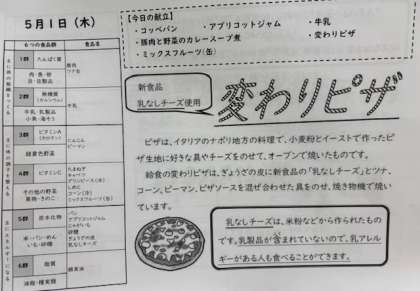 5月1日(木)
【今日の献立】
・コッペパン ・アプリコットジャム ・牛乳
・豚肉と野菜のカレースープ煮 ・変わりピザ
・ミックスフルーツ(缶)
6つの食品群 食品名
1群 たんぱく質
肉・魚・卵
豆・豆製品
豚肉
ツナ缶
2群 無機質
(カルシウム)
牛乳・乳製品
小魚・海そう
牛乳
3群 ビタミンA
緑黄色野菜
にんじん
ピーマン
4群 ビタミンC
その他の野菜
果物・きのこ
たまねぎ
キャベツ
しめじ
コーン(缶)
ミックスフルーツ(缶)
5群 炭水化物
米・パン・めん
いも・砂糖
パン
アプリコットジャム
じゃがいも
砂糖
ぎょうざの皮
乳なしチーズ
6群 脂質
油脂・種実類
新食品
乳なしチーズ使用
変わりピザ
ピザは、イタリアのナポリ地方の料理で、小麦粉とイーストで作ったピ
ザ生地に好きな具やチーズをのせて、オーブンで焼いたものです。
給食の変わりピザは、ぎょうざの皮に新食品の「乳なしチーズ」とツナ、
コーン、ピーマン、ピザソースを混ぜ合わせた具をのせ、焼き物機で焼い
ています。
乳なしチーズは、米粉などから作られたもの
です。乳製品が含まれていないので、乳アレル
ギーがある人も食べることができます。